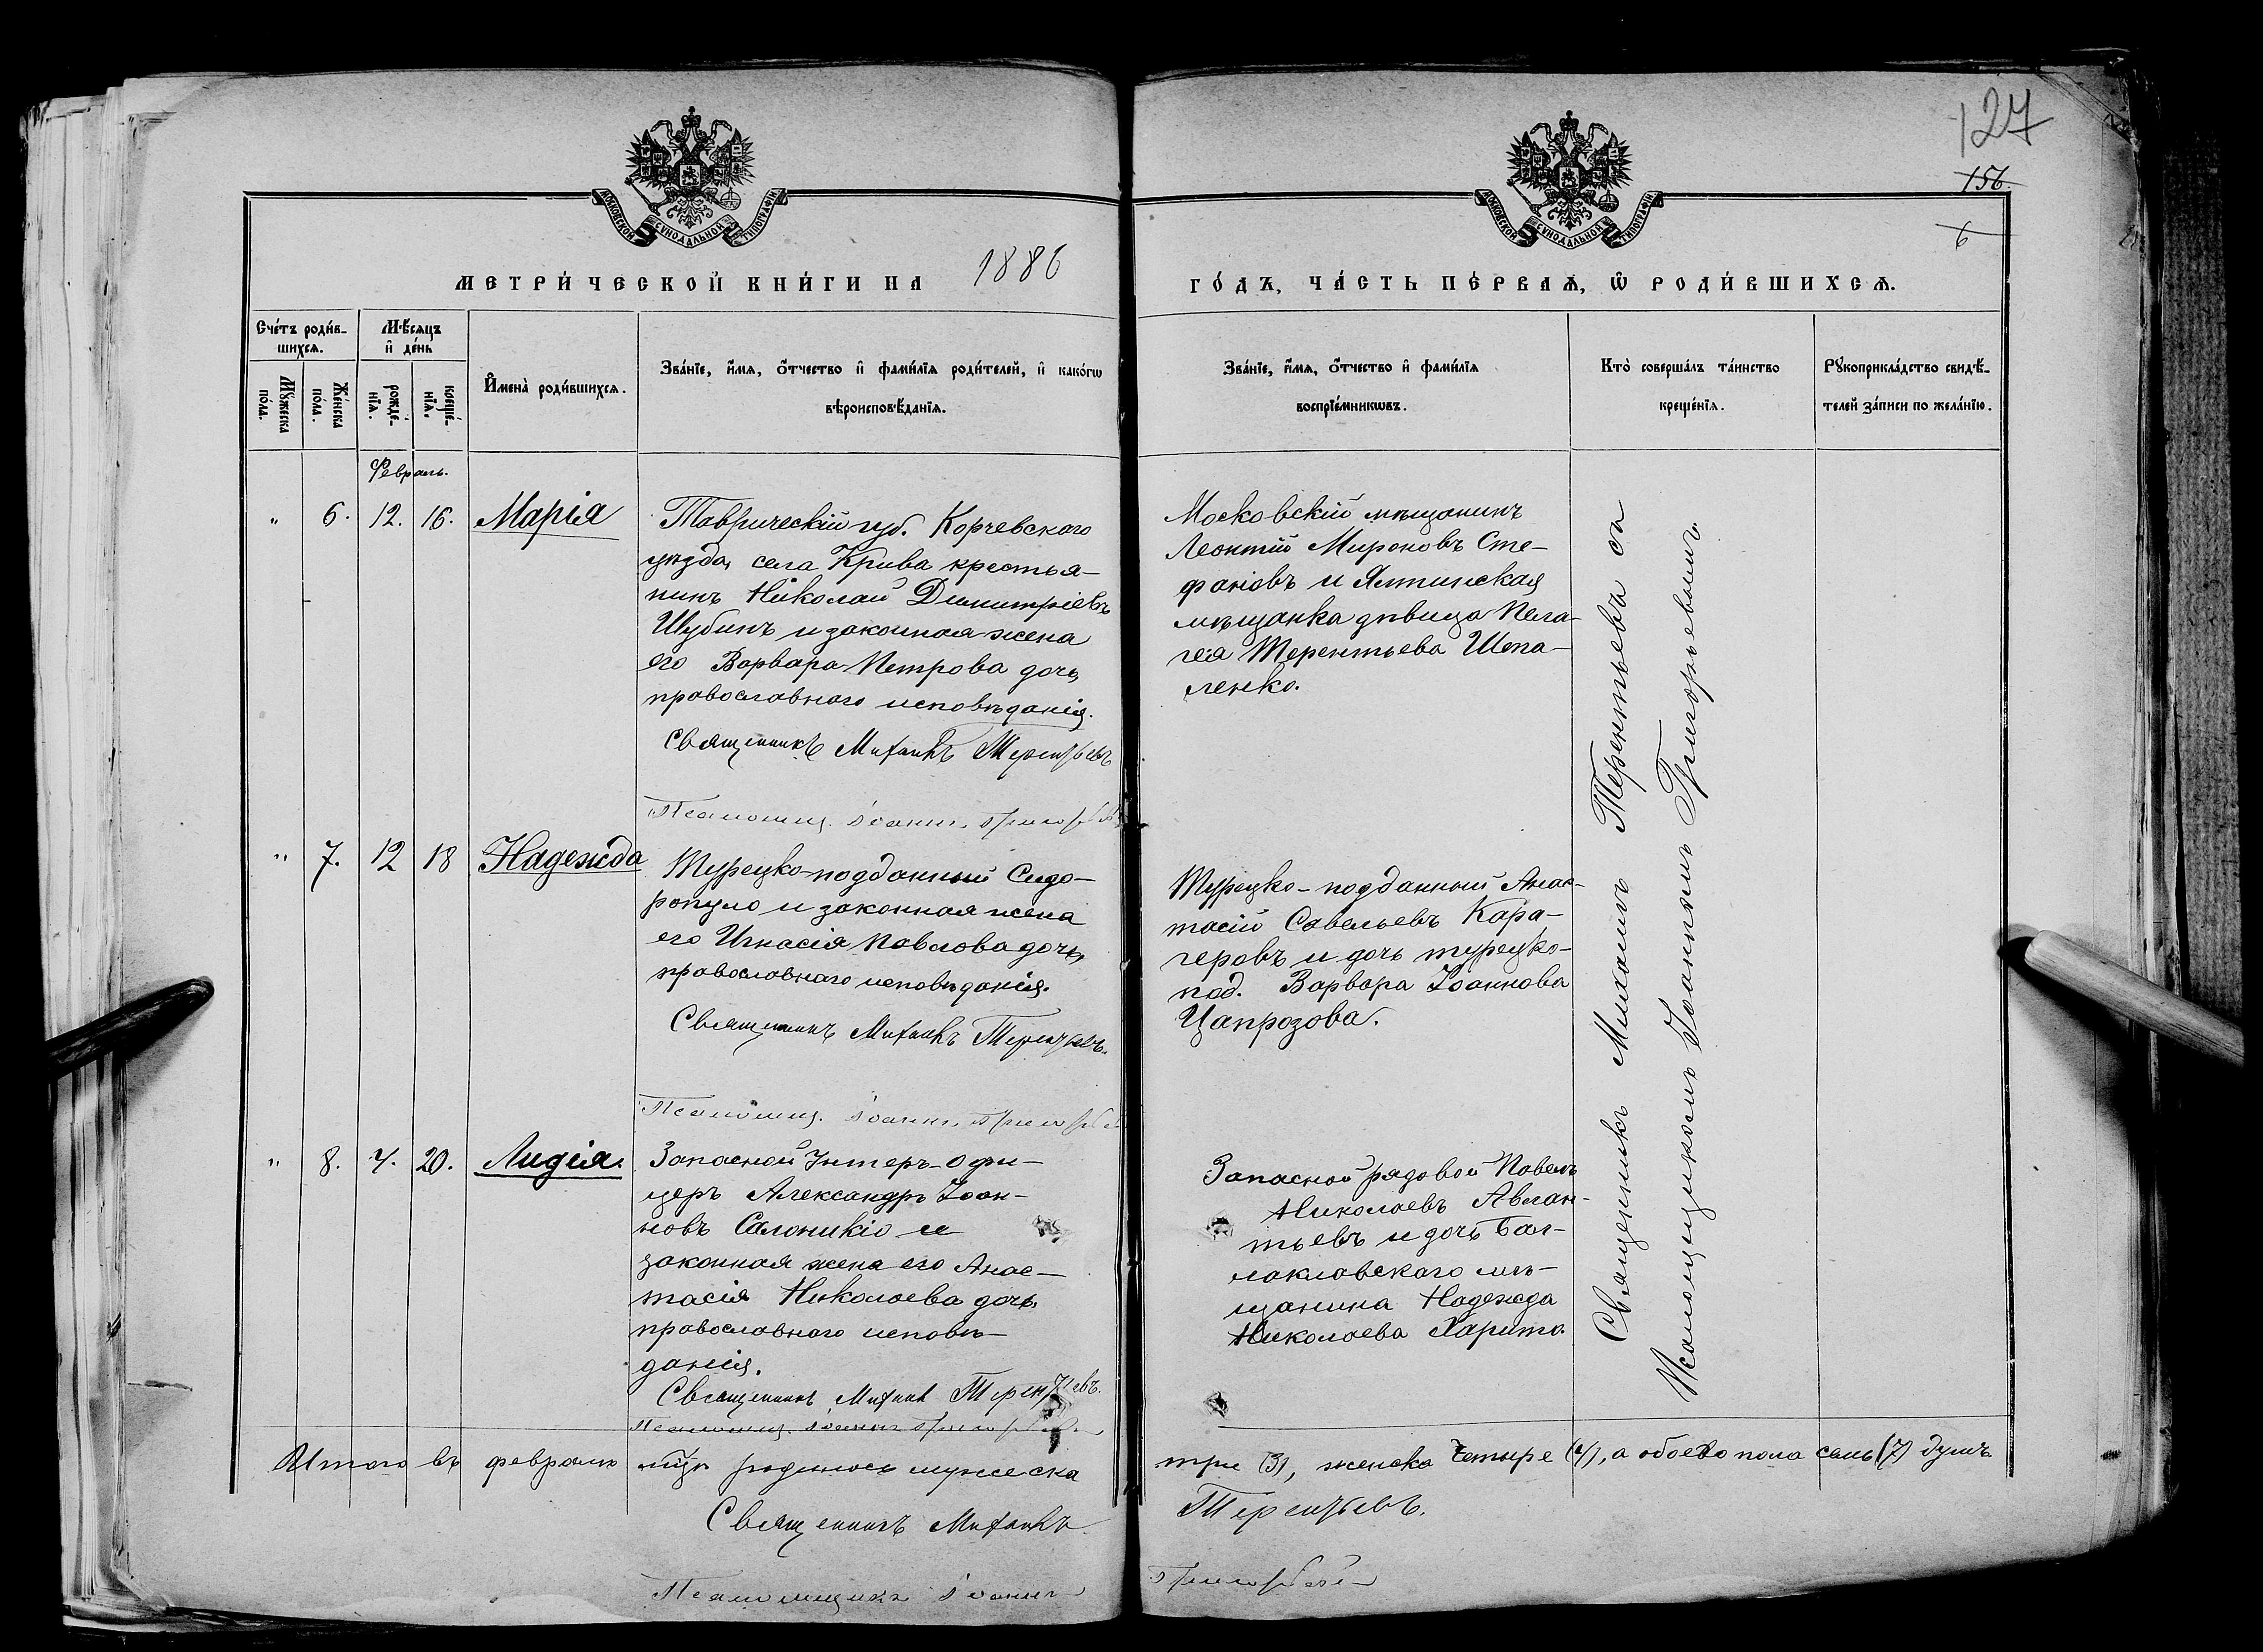 127
156.
6
МОСКОВСКОЙ СУНОДАЛЬНОЙ ТИПОГРАФІИ
МОСКОВСКОЙ СУНОДАЛЬНОЙ ТИПОГРАФІИ
МЕТРИ́ЧЕСКОЙ КНИ́ГИ НА 1886
ГО́ДЪ, ЧА́СТЬ ПЕ́РВАѦ, Ѡ҆ РОДИ́ВШИХСѦ.
Сче́тъ роди́в-
шихся.
Мꙋ́жеска
по́ла.
Же́нска
по́ла.
Мѣ́сяцъ
и҆ де́нь
рожде́-
нїя.
креще́-
нїя.
И҆мена̀ роди́вшихся.
Зва́нїе, и҆́мя, ѻ҆́тчество и҆ фами́лїя роди́телей, и҆ како́гѡ
вѣроисповѣ́данїя.
Зва́нїе, и҆́мя, ѻ҆́тчество и҆ фами́лїя
воспрїе́мникѡвъ.
Кто̀ соверша́лъ та́инство
креще́нїя.
Рꙋкоприкла́дство свидѣ́-
телей за́писи по жела́нїю.
Февраль.
" 6. 12. 16. Марія
Таврической губ. Корчевского
уѣзда, села Крива крестья-
нинъ Николай Димитріевъ
Шубинъ и законная жена
его Варвара Петрова дочь,
православнаго исповѣданія.
Священникъ Михаилъ Терентьевъ
Псаломщ. Іоаннъ Григорьевъ
Московскій мѣщанинъ
Леонтій Мироновъ Сте-
фановъ и Ялтинская
мѣщанка дѣвица Пела-
гея Терентьева Шепа-
ленко.
" 7. 12 18 Надежда
Турецко-подданный Сидо-
ропуло и законная жена
его Игнасія Павлова дочь,
православнаго исповѣданія.
Священникъ Михаилъ Терентьевъ.
Псаломщ. Іоаннъ Григорьев
Турецко-подданный Анас-
тасій Савельевъ Кара-
геровъ и дочь турецко-
под. Варвара Іоаннова
Цапрозова.
" 8. 4. 20. Лидія.
Запасной Унтеръ-офи-
церъ Александръ Іоан-
новъ Салоникіо и
законная жена его Анас-
тасія Николаева дочь,
православнаго исповѣ-
данія.
Священникъ Михаилъ Терентьевъ.
Псаломщ. Іоаннъ Григорьев
Запасной рядовой Павелъ
Николаевъ Авлан-
тьевъ и дочь Бал-
лаклавского мѣ-
щанина Надежда
Николаева Харито.
Священникъ Михаилъ Терентьевъ съ
Псаломщикомъ Іоанномъ Григорьевымъ
Итого въ февралѣ мцѣ родилось мужеска
три (3), женска четыре (4), а обоево пола семь (7) душъ
Священникъ Михаилъ
Терентьевъ.
Псаломщикъ Іоаннъ
Григорьевъ